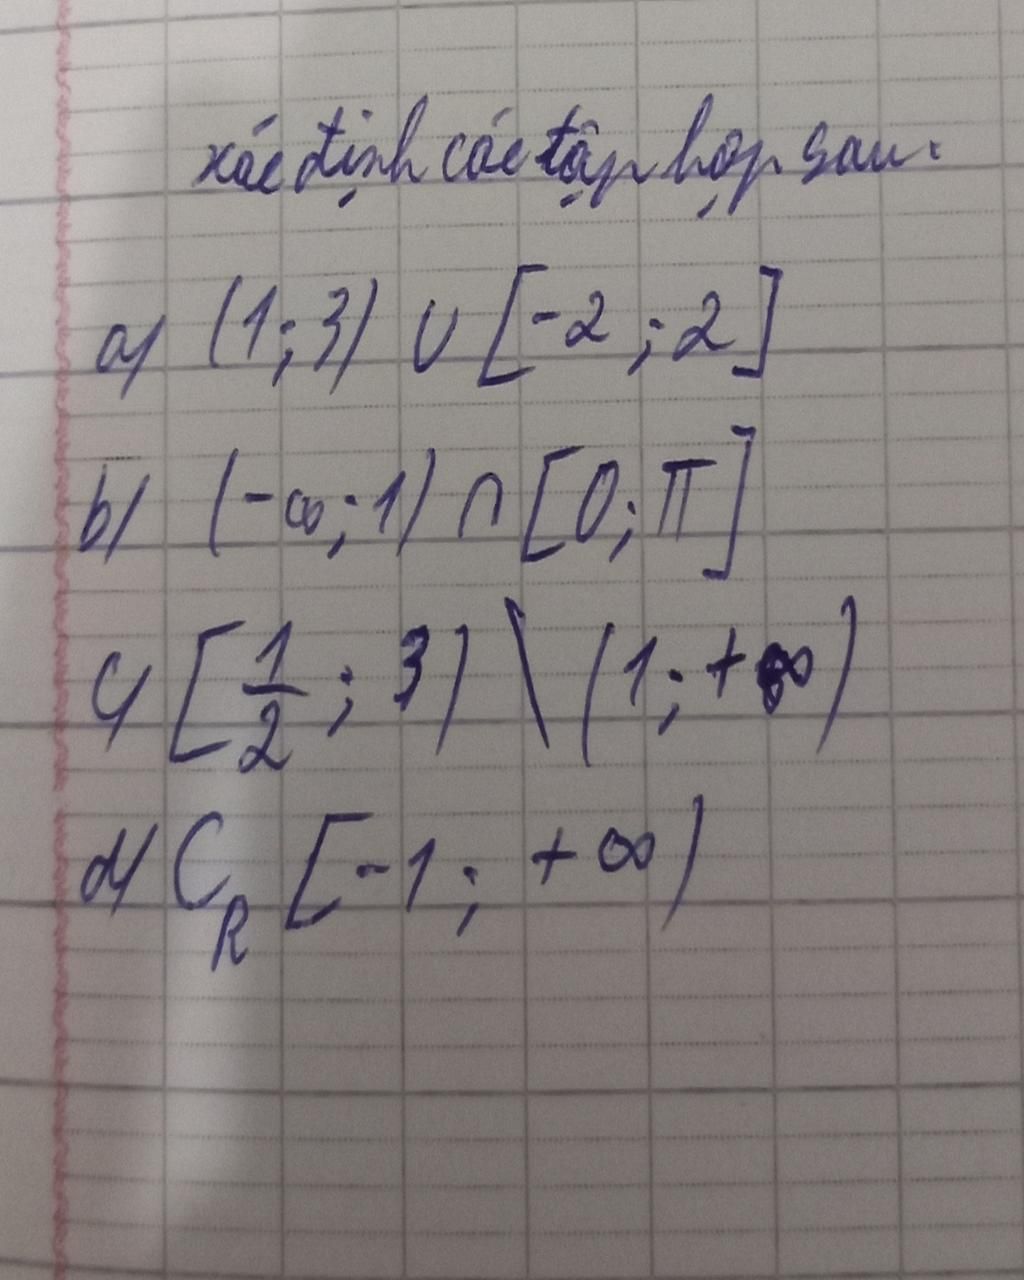 xác định các tập hợp sau.
a) (1;3) ∪ [-2;2]
b) (-∞;1) ∩ [0;π]
c) [1/2;3) \ (1;+∞)
d) C_R [-1;+∞)